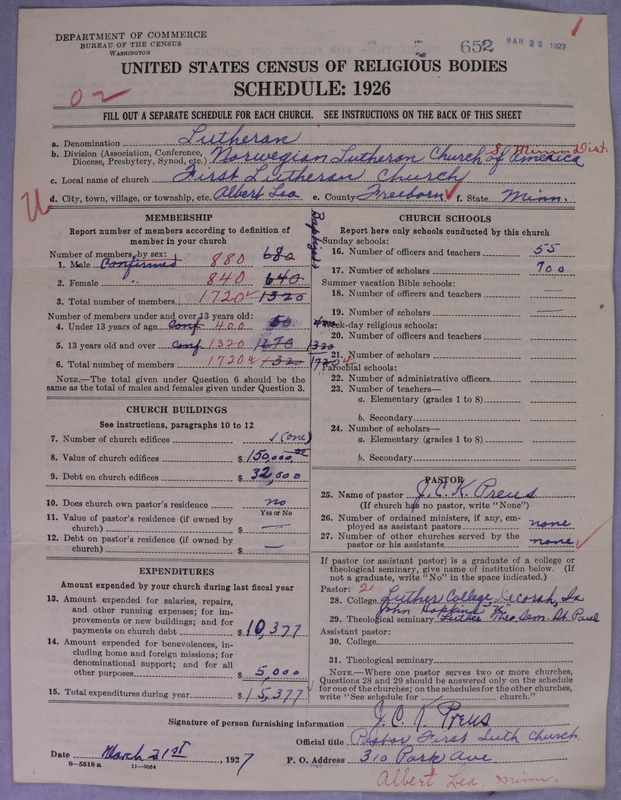 DEPARTMENT OF COMMERCE
BUREAU OF THE CENSUS
WASHINGTON
652 MAR 23 1927
1
UNITED STATES CENSUS OF RELIGIOUS BODIES
SCHEDULE: 1926
02
FILL OUT A SEPARATE SCHEDULE FOR EACH CHURCH. SEE INSTRUCTIONS ON THE BACK OF THIS SHEET
a. Denomination Lutheran
b. Division (Association, Conference, Diocese, Presbytery, Synod, etc.) Norwegian Lutheran Church of America
So. Minn. Dist.
c. Local name of church First Lutheran Church
d. City, town, village, or township, etc. Albert Lea e. County Freeborn f. State Minn.
MEMBERSHIP
Report number of members according to definition of member in your church
Baptized
Number of members by sex:
1. Male Confirmed 880 680
2. Female " 840 640
3. Total number of members 1720 1320
Number of members under and over 13 years old:
4. Under 13 years of age Conf 400 50 400
5. 13 years old and over Conf 1320 1270 1320
6. Total number of members 1720 1320 1720
NOTE.—The total given under Question 6 should be the same as the total of males and females given under Question 3.
CHURCH BUILDINGS
See instructions, paragraphs 10 to 12
7. Number of church edifices 1 (one)
8. Value of church edifices $150,000.00
9. Debt on church edifices $32,000
10. Does church own pastor's residence no
Yes or No
11. Value of pastor's residence (if owned by church) $ —
12. Debt on pastor's residence (if owned by church) $ —
EXPENDITURES
Amount expended by your church during last fiscal year
13. Amount expended for salaries, repairs, and other running expenses; for improvements or new buildings; and for payments on church debt $10,377
14. Amount expended for benevolences, including home and foreign missions; for denominational support; and for all other purposes $5,000
15. Total expenditures during year $15,377
CHURCH SCHOOLS
Report here only schools conducted by this church
Sunday schools:
16. Number of officers and teachers 55
17. Number of scholars 700
Summer vacation Bible schools:
18. Number of officers and teachers —
19. Number of scholars —
Week-day religious schools:
20. Number of officers and teachers
21. Number of scholars
Parochial schools:
22. Number of administrative officers
23. Number of teachers—
a. Elementary (grades 1 to 8)
b. Secondary
24. Number of scholars—
a. Elementary (grades 1 to 8)
b. Secondary
PASTOR
25. Name of pastor J. C. K. Preus
(If church has no pastor, write "None")
26. Number of ordained ministers, if any, employed as assistant pastors none
27. Number of other churches served by the pastor or his assistants none
If pastor (or assistant pastor) is a graduate of a college or theological seminary, give name of institution below. (If not a graduate, write "No" in the space indicated.)
Pastor: 2
28. College Luther College Decorah, Ia
John Hopkins
29. Theological seminary Luther Theo. Sem. St. Paul
Assistant pastor:
30. College
31. Theological seminary
NOTE.—Where one pastor serves two or more churches, Questions 28 and 29 should be answered only on the schedule for one of the churches; on the schedules for the other churches, write "See schedule for ______ church."
Signature of person furnishing information J. C. K. Preus
Official title Pastor First Luth Church
Date March 21st, 1927 P. O. Address 310 Park Ave
8-5518a 11-9054
Albert Lea, Minn.